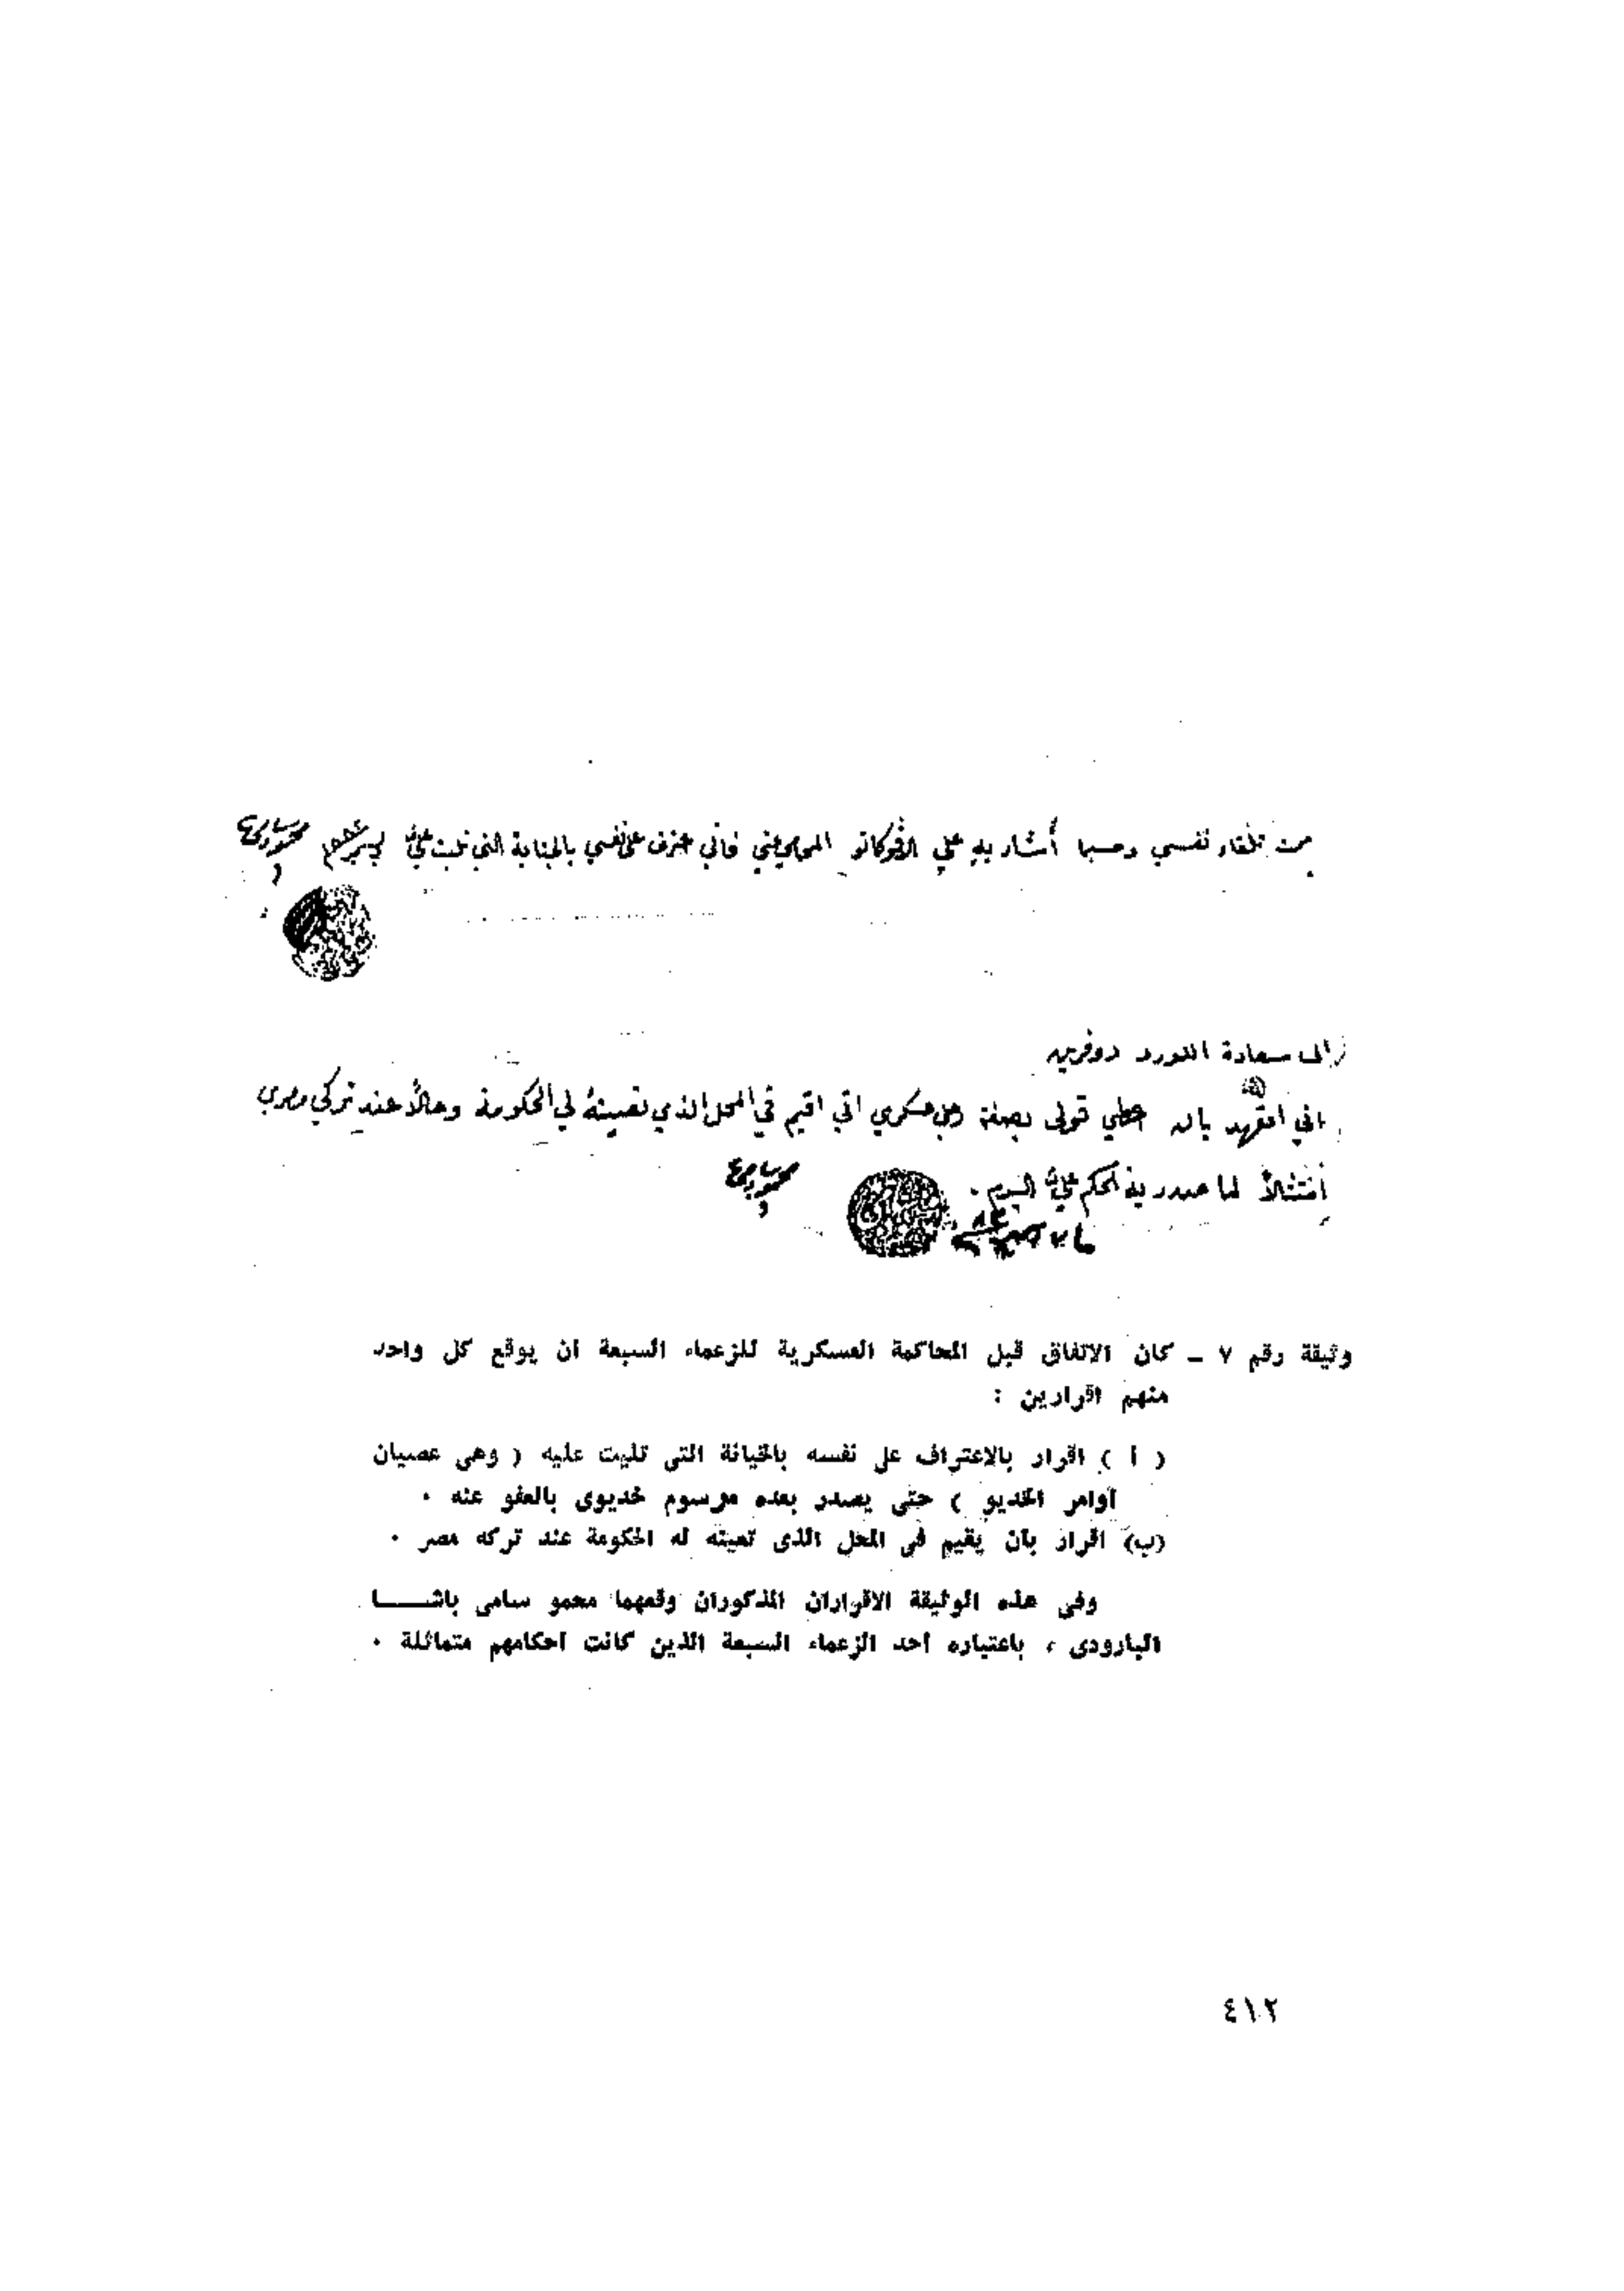 من تلقاء نفسي وحسبما أشار به علي الافوكاتو المحامي عني فاني اعترف على نفسي بالجناية التي تليت عليّ
محمود سامي
الى سعادة اللورد دوفرين
اني اتعهد بان اعطي قولى بصفة رجل عسكري اني اقيم في المحل الذي تعينه لي الحكومة وحالاً عند تركي مصر
امتثالاً لما صدر به الحكم عليّ اليوم .
محمود سامي
وثيقة رقم ٧ ــ كان الاتفاق قبل المحاكمة العسكرية للزعماء السبعة ان يوقع كل واحد
منهم اقرارين :
( ا ) اقرار بالاعتراف على نفسه بالخيانة التى تليت عليه ( وهى عصيان
أوامر الخديو ) حتى يصدر بعده مرسوم خديوى بالعفو عنه .
(ب) اقرار بأن يقيم فى المحل الذى تعينه له الحكومة عند تركه مصر .
وفى هذه الوثيقة الاقراران المذكوران وقعهما محمو سامى باشــــا
البارودى ، باعتباره أحد الزعماء السبعة الذين كانت أحكامهم متماثلة .
٤١٢